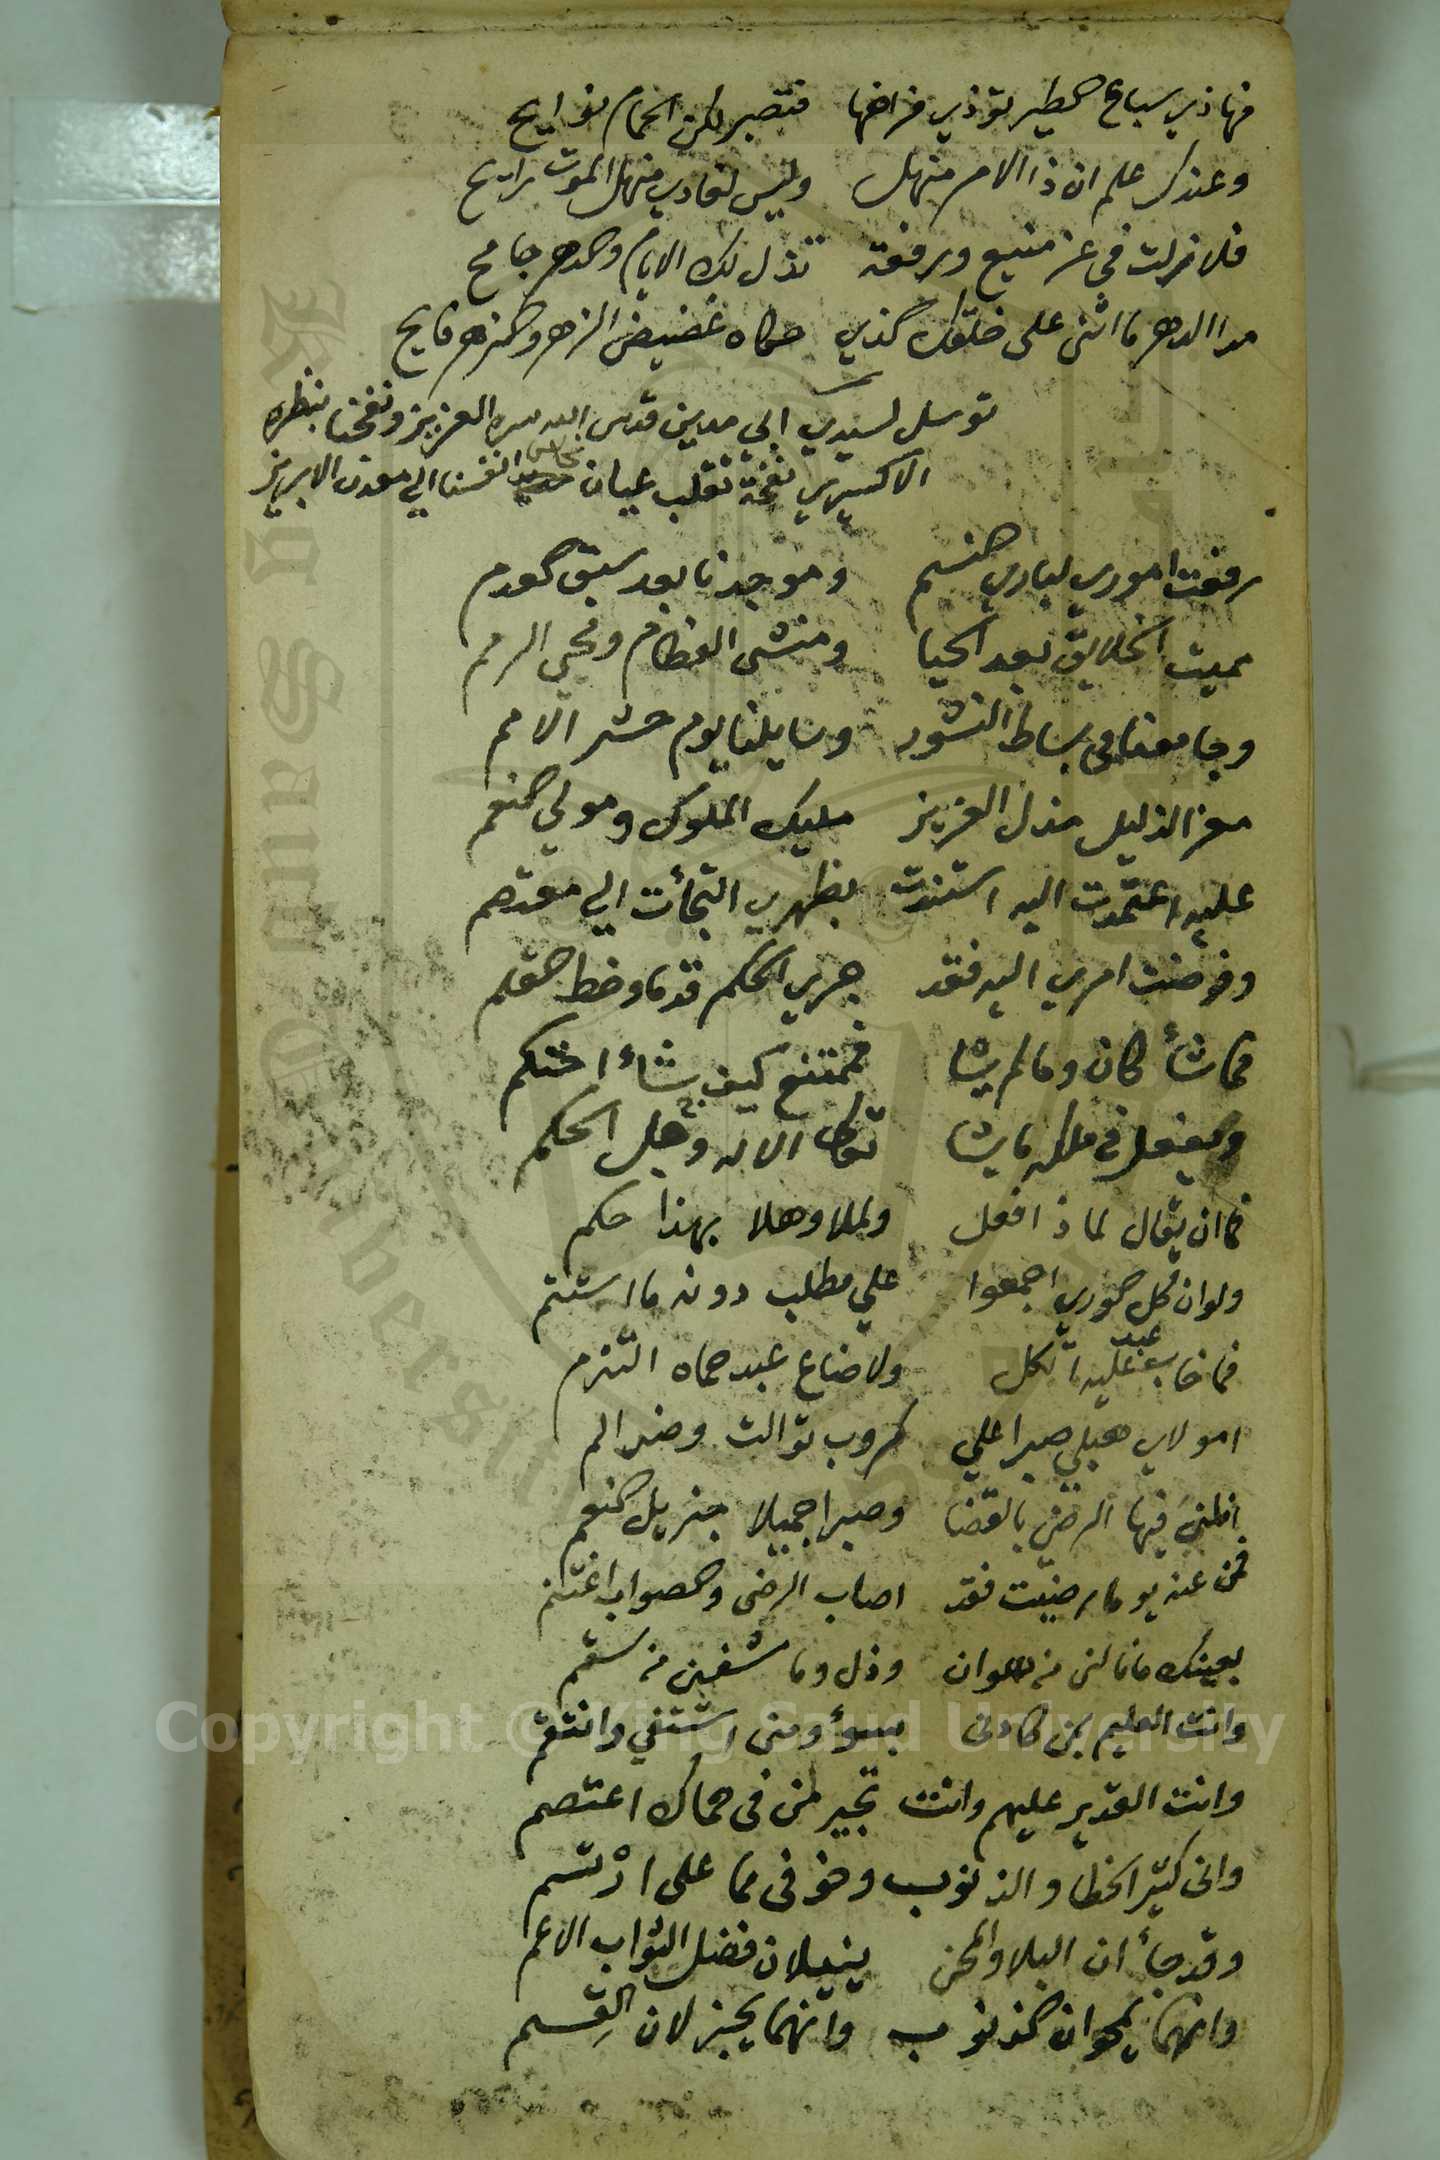 فهاذي سباع الطير تؤذي فراخها فتصبر لكن الحمام نوايح
وعندك علم ان ذا الامر منهل وليس لغادي منهل الموت رايح
فلا زلت في عز منيع ورفعة تذل لك الايام والدهر جامح
مدا الدهر ما اثنى على خلقك الذي حكاه غضيض الزهر والزهر فايح
توسل لسيدي ابي مدين قدس الله سره العزيز ونفحنا بنظره
الاكسيري نفحة تقلب عيان نحاس انفسنا الي معدن الابريز
رفعت اموري لباري النسم وموجدنا بعد سبق العدم
مميت الخلايق بعد الحيا ومنشى العظام ومحيي الرمم
وجامعنا في بساط النشور وسايلنا يوم حشر الامم
معز الذليل مذل العزيز مليك الملوك ومولي النعم
عليه اعتمدت اليه استندت بظهري التجأت الي معتصم
وفوضت امري اليه فقد جري الحكم قدما وخط القلم
فما شأ كان وما لم يشا فممتنع كيف شاء احتكم
ويفعل في ملكه ما يشا تعالى الاله وجل الحكم
فما ان يقال لماذا فعل ولم لا وهلا بهذا حكم
ولو ان كل الوري اجمعوا علي مطلب دونه ما استتم
فما خاب عبد عليه اتكل ولا ضاع عبد حماه التزم
امولاي هبلي صبرا علي كروب توالت وضر الم
انلني فيها الرضي بالقضا وصبرا جميلا جزيل النعم
فمن عنه يوما رضيت فقد اصاب الرضى والصواب اغتنم
بعينك ما نالني من هوان وذل وما شفني من سقم
وانت العليم بمن كادني بسوأ ومني اشتفي وانتقم
وانت القدير عليهم وانت تجير لمن في حماك اعتصم
واني كثير الخطا والذنوب وخوفي مما علي ارتسم
وقد جأ ان البلا والمحن ينيلان فضل الثواب الاعم
وانهما يمحوان الذنوب وانهما يجزلان القِسم